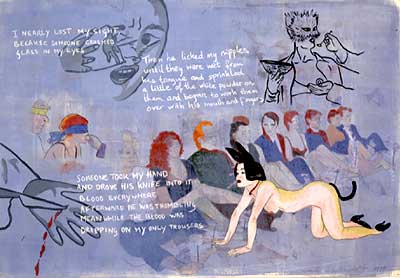 I NEARLY LOST MY SIGHT,
BECAUSE SOMEONE CRUSHED
GLASS IN MY EYES
Then he licked my nipples
until they were wet from
his tongue and sprinkled
a little of the white powder on
them and began to work them
over with his mouth and fingers
SOMEONE TOOK MY HAND
AND DROVE HIS KNIFE INTO IT
BLOOD EVERYWHERE
AFTERWARD HE WAS TREMBLING
MEANWHILE THE BLOOD WAS
DRIPPING ON MY ONLY TROUSERS